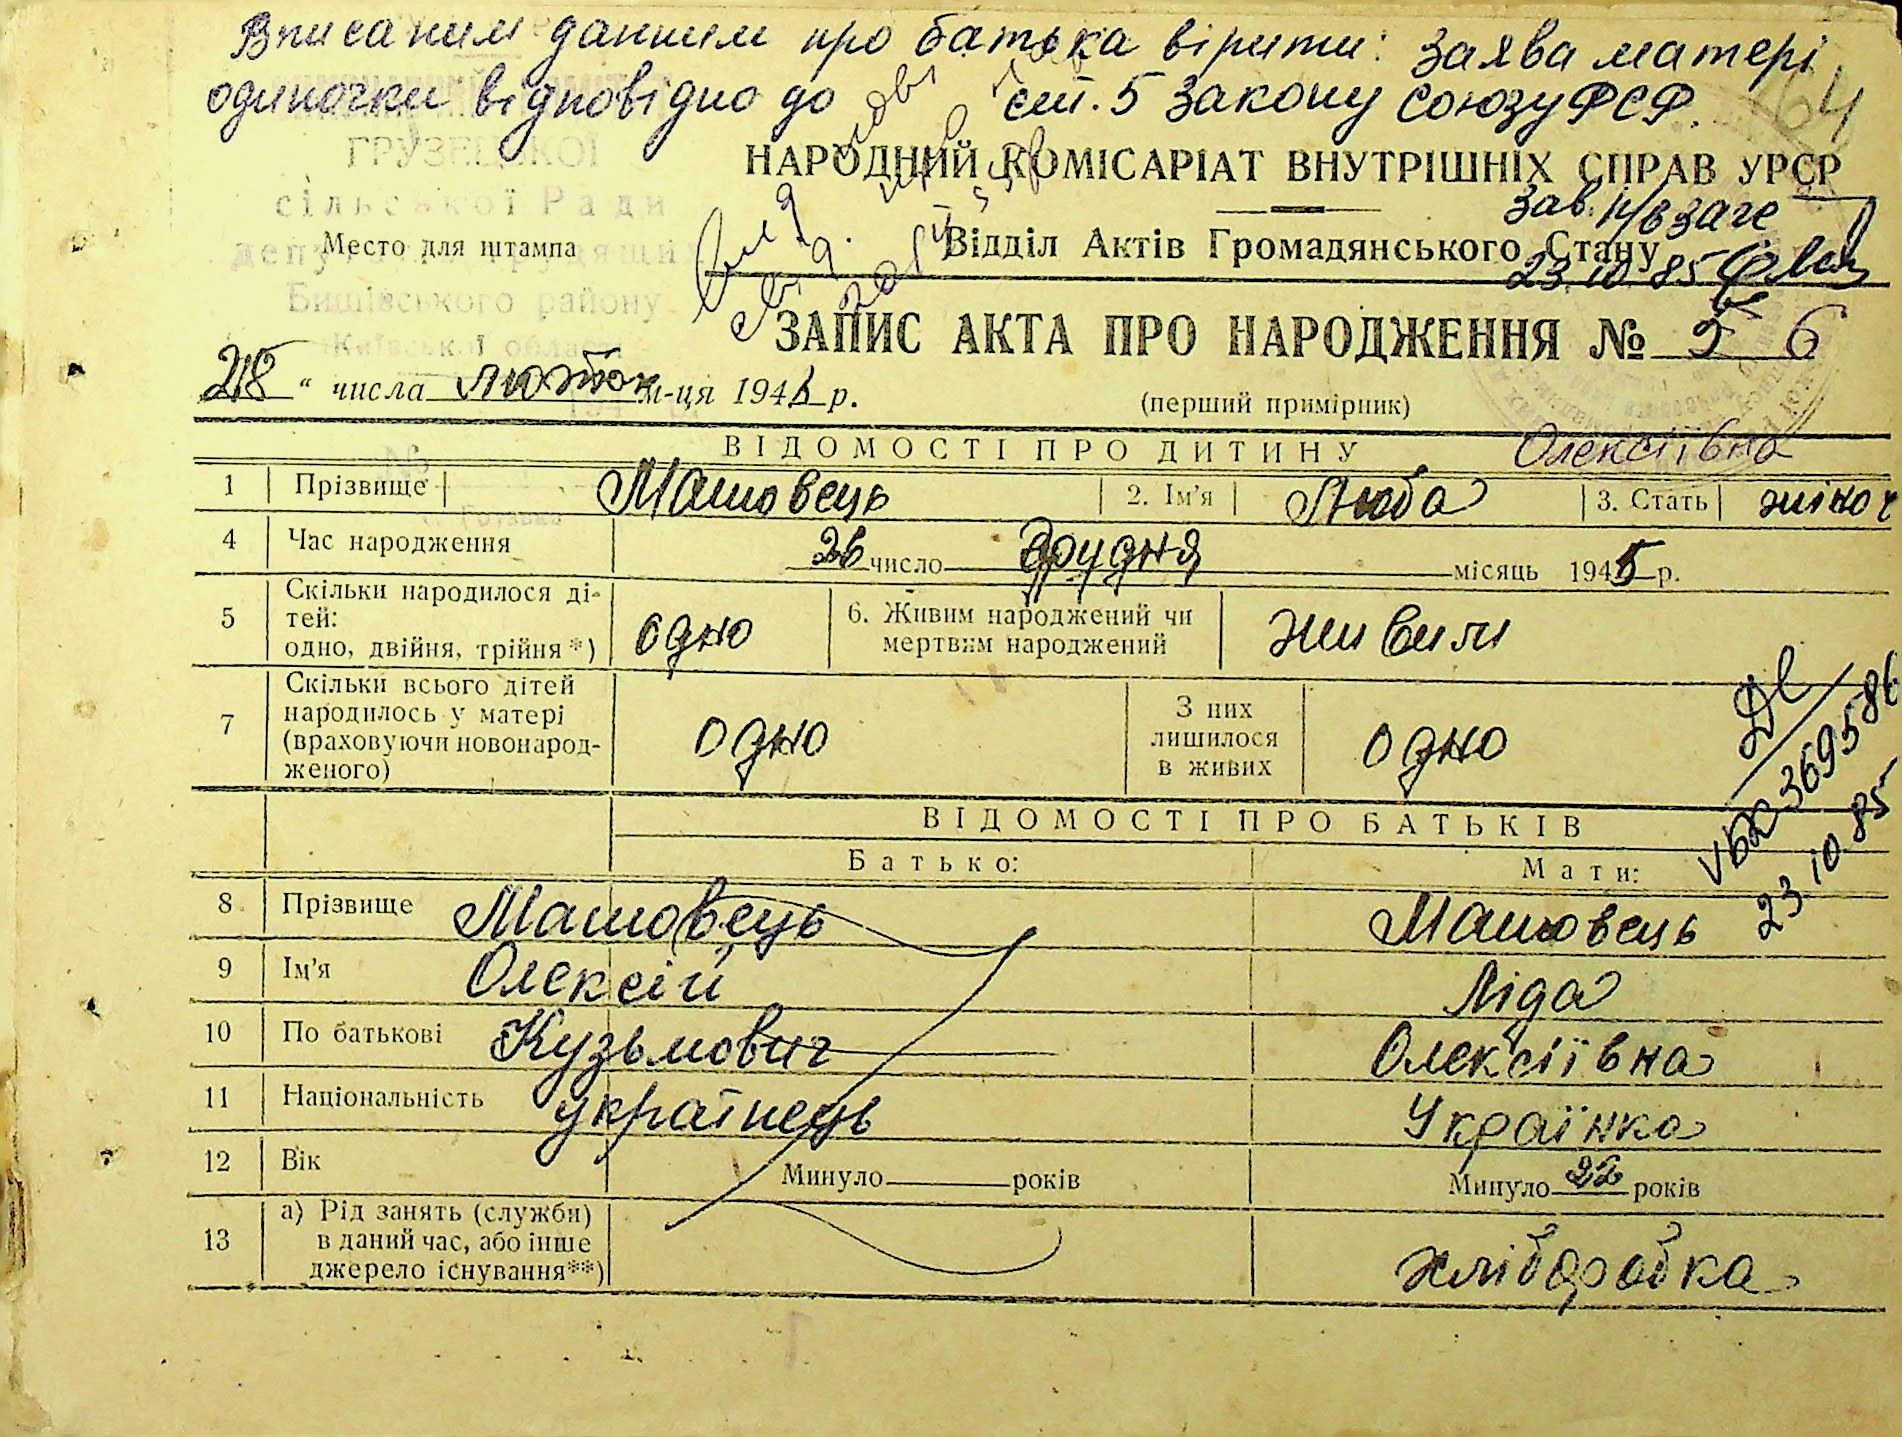 Вписаним данним про батька вірити: заява матері
одиночки відповідно до ст. 5 Закону Союзу РСР.
64
ГРУЗСЬКОЇ
сільської Ради
депутатів трудящих
Бишівського району
Київської області
НАРОДНИЙ КОМІСАРІАТ ВНУТРІШНІХ СПРАВ УРСР
Место для штампа
Відділ Актів Громадянського Стану
23.10.85
ЗАПИС АКТА ПРО НАРОДЖЕННЯ № 6
28 " числа м-ця 194 р.
(перший примірник)
ВІДОМОСТІ ПРО ДИТИНУ
Олексіївна
1 Прізвище Машовець 2. Ім'я Люба 3. Стать жіноч
4 Час народження 26 число Грудня місяць 1945 р.
5 Скільки народилося ді-
тей:
одно, двійня, трійня*) одно 6. Живим народжений чи
мертвим народжений живим
7 Скільки всього дітей
народилось у матері
(враховуючи новонарод-
женого) одно З них
лишилося
в живих одно
23.10.85
ВІДОМОСТІ ПРО БАТЬКІВ
Батько: Мати:
8 Прізвище Машовець Машовець
9 Ім'я Олексій Ліда
10 По батькові Кузьмович Олексіївна
11 Національність українець Українка
12 Вік Минуло років Минуло 22 років
13 а) Рід занять (служби)
в даний час, або інше
джерело існування**) хліборобка